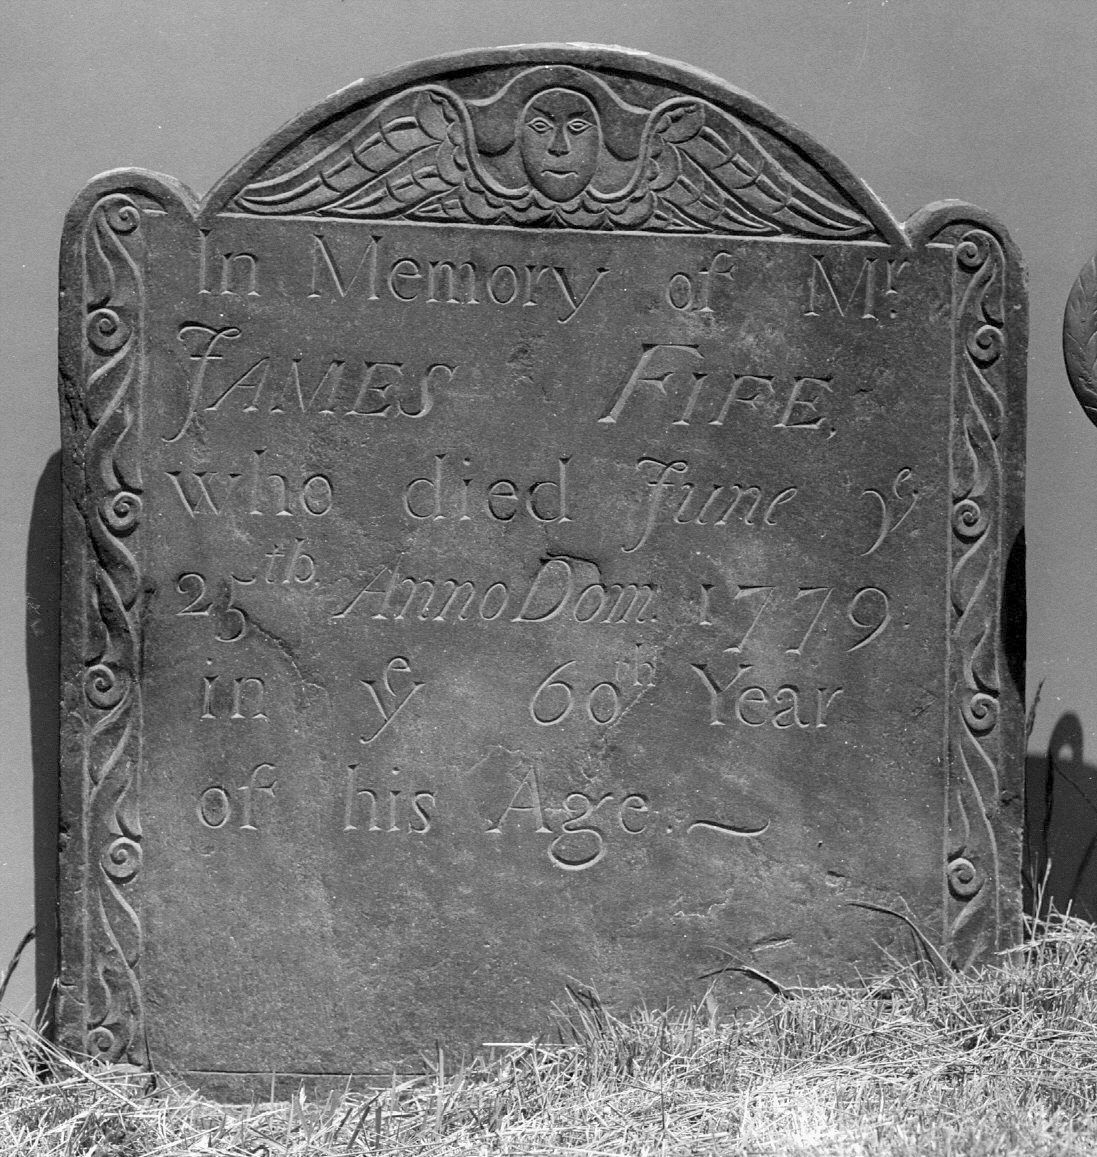 In Memory of Mr.
JAMES FIFE,
who died June ye
25th. Anno Dom. 1779.
in ye 60th Year
of his Age. ~